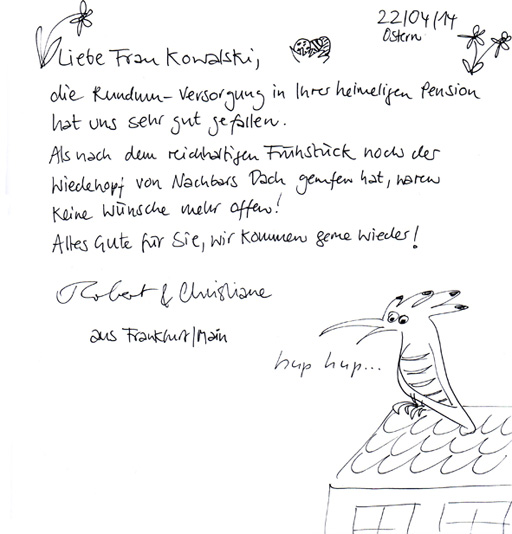 22/04/14
Ostern
Liebe Frau Kowalski,
die Rundum-Versorgung in Ihrer heimeligen Pension
hat uns sehr gut gefallen.
Als nach dem reichhaltigen Frühstück noch der
Wiedehopf von Nachbars Dach gerufen hat, waren
keine Wünsche mehr offen!
Alles Gute für Sie, wir kommen gerne wieder!
Robert & Christiane
aus Frankfurt/Main
hup hup...